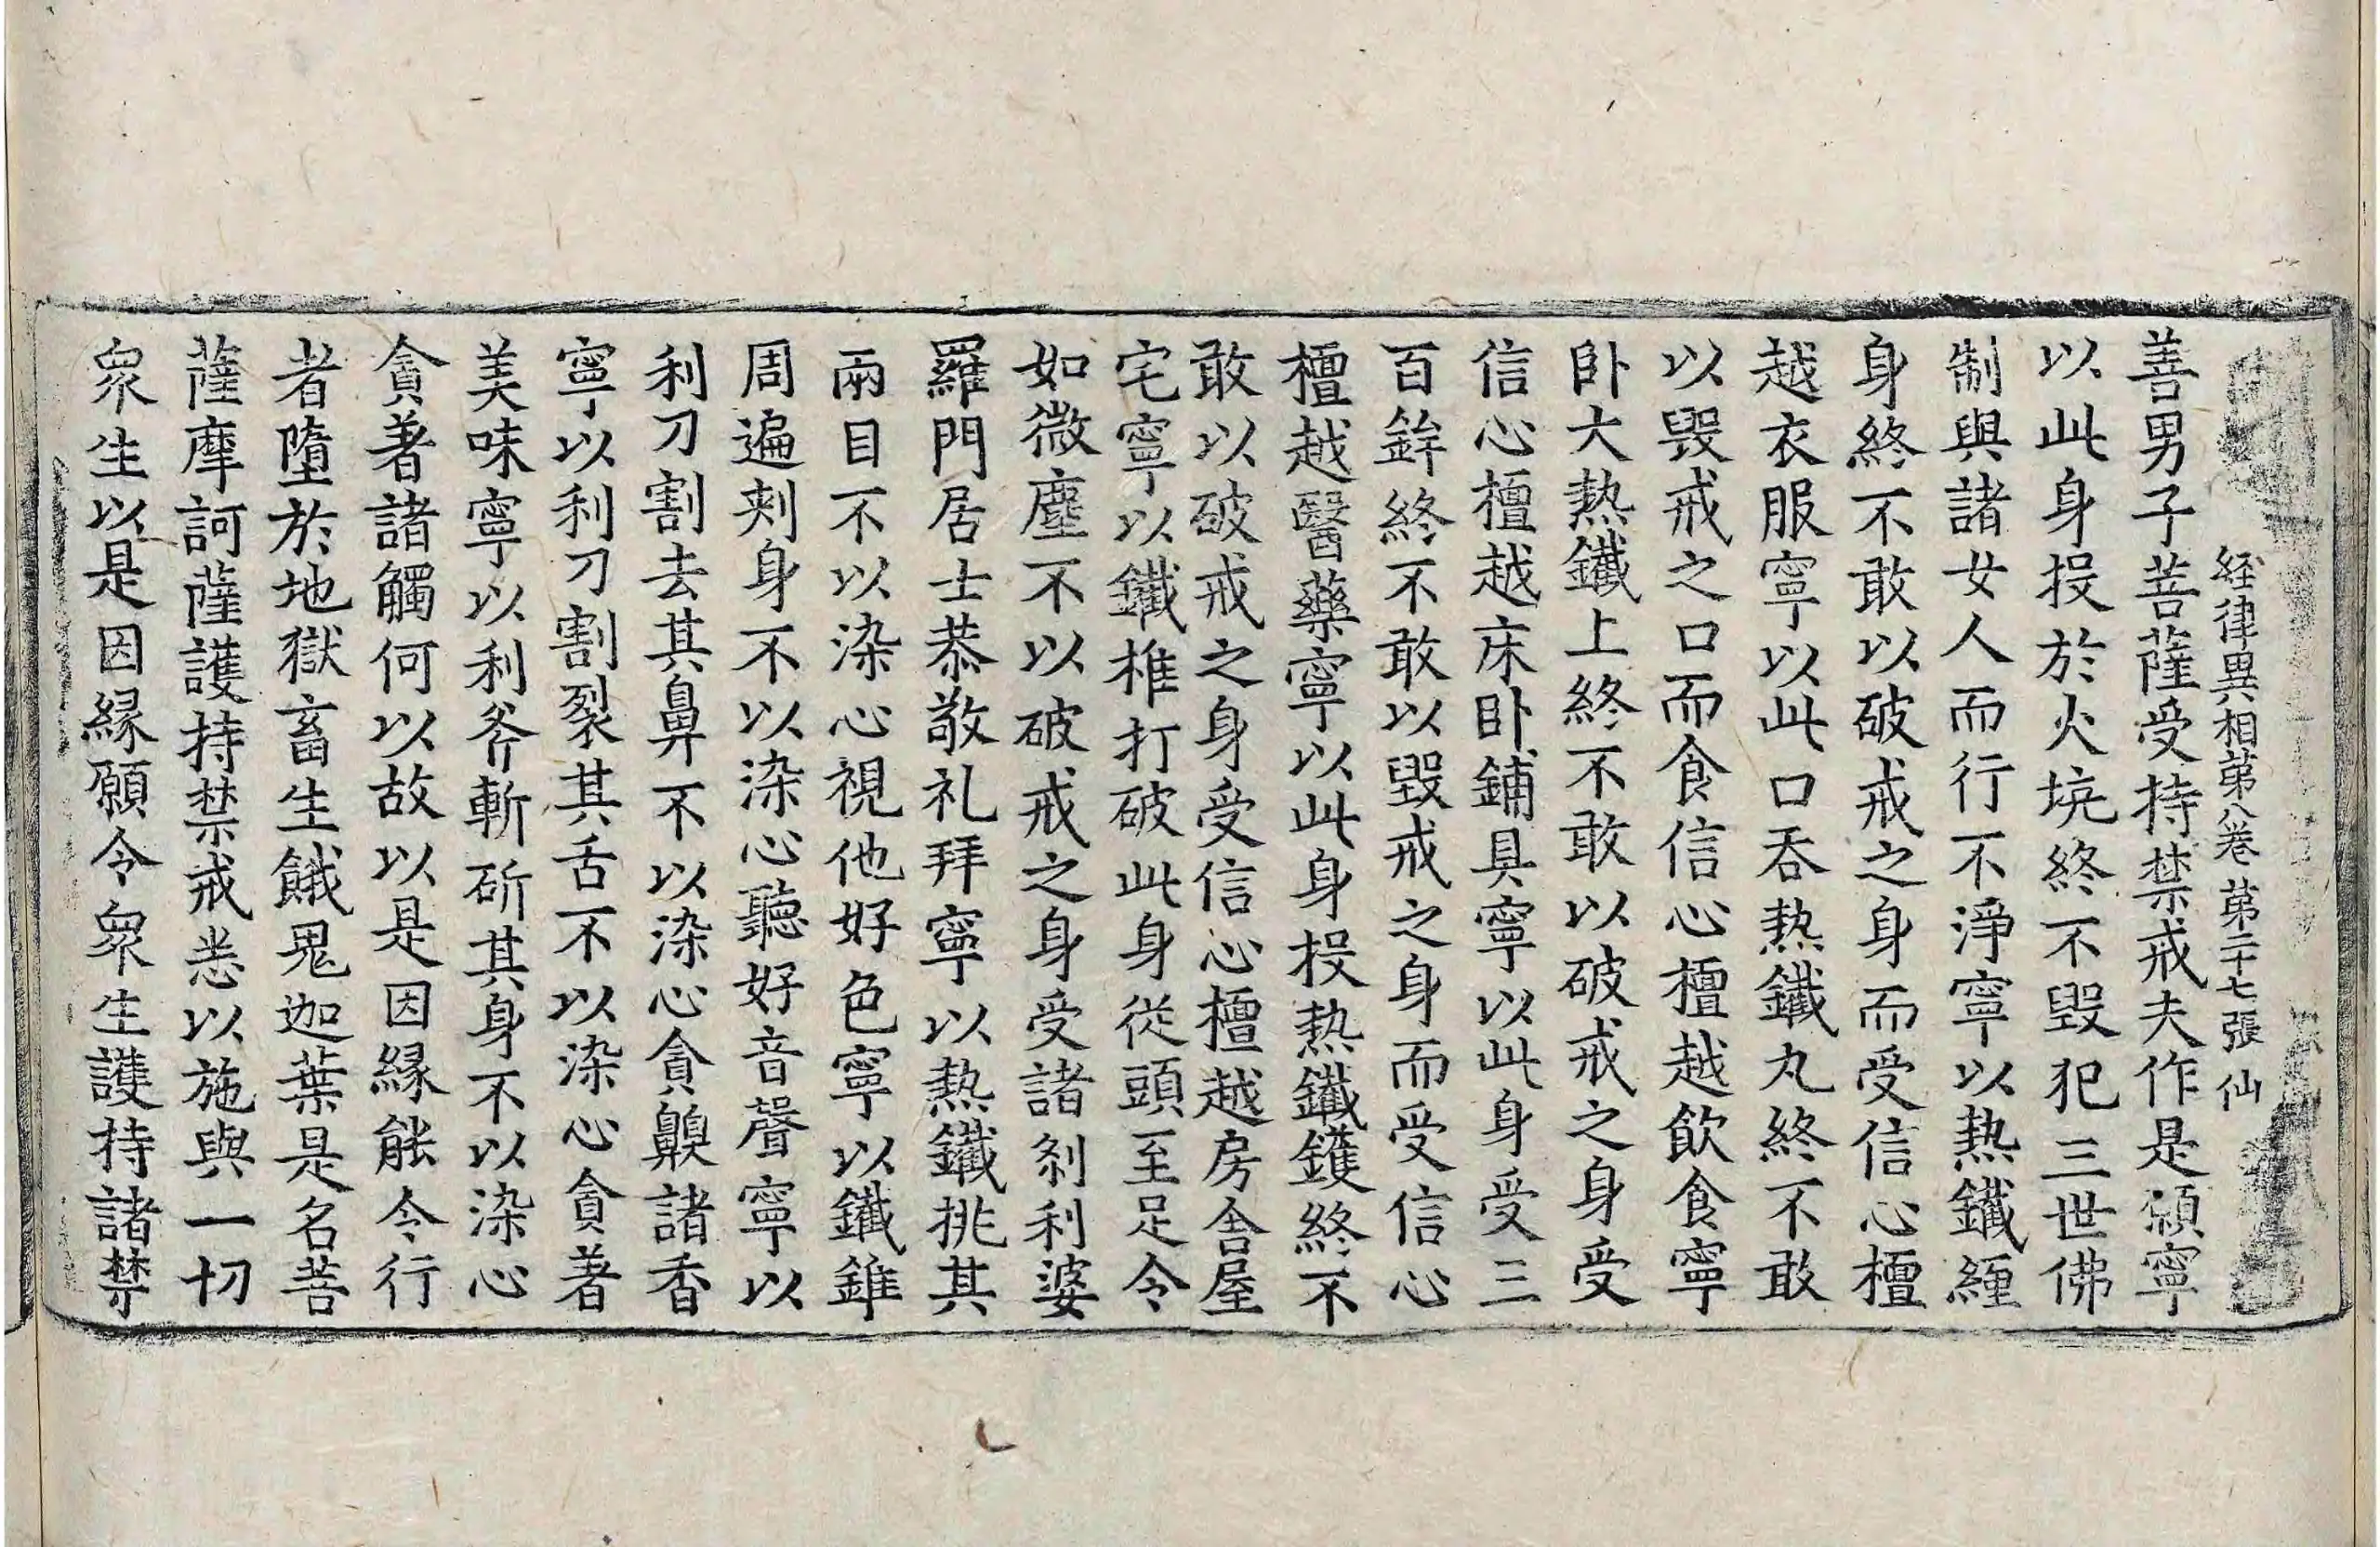 経律異相苐八卷 苐二十七張 仙
善男子菩薩受持禁戒夫作是願寧
以此身投於火坑終不毀犯三世佛
制與諸女人而行不淨寧以熱鐵纏
身終不敢以破戒之身而受信心檀
越衣服寧以此口吞熱鐵丸終不敢
以毀戒之口而食信心檀越飲食寧
卧大熱鐵上終不敢以破戒之身受
信心檀越床卧鋪具寧以此身受三
百鉾終不敢以毀戒之身而受信心
檀越醫藥寧以此身投熱鐵鑊終不
敢以破戒之身受信心檀越房舍屋
宅寧以鐵椎打破此身從頭至足令
如微塵不以破戒之身受諸剎利婆
羅門居士恭敬礼拜寧以熱鐵挑其
兩目不以染心視他好色寧以鐵錐
周遍刾身不以染心聽好音聲寧以
利刀割去其鼻不以染心貪齅諸香
寧以利刀割裂其舌不以染心貪著
美味寧以利斧斬斫其身不以染心
貪著諸觸何以故以是因緣能令行
者墮於地獄畜生餓鬼迦葉是名菩
薩摩訶薩護持禁戒悉以施與一切
衆生以是因緣願令衆生護持諸禁